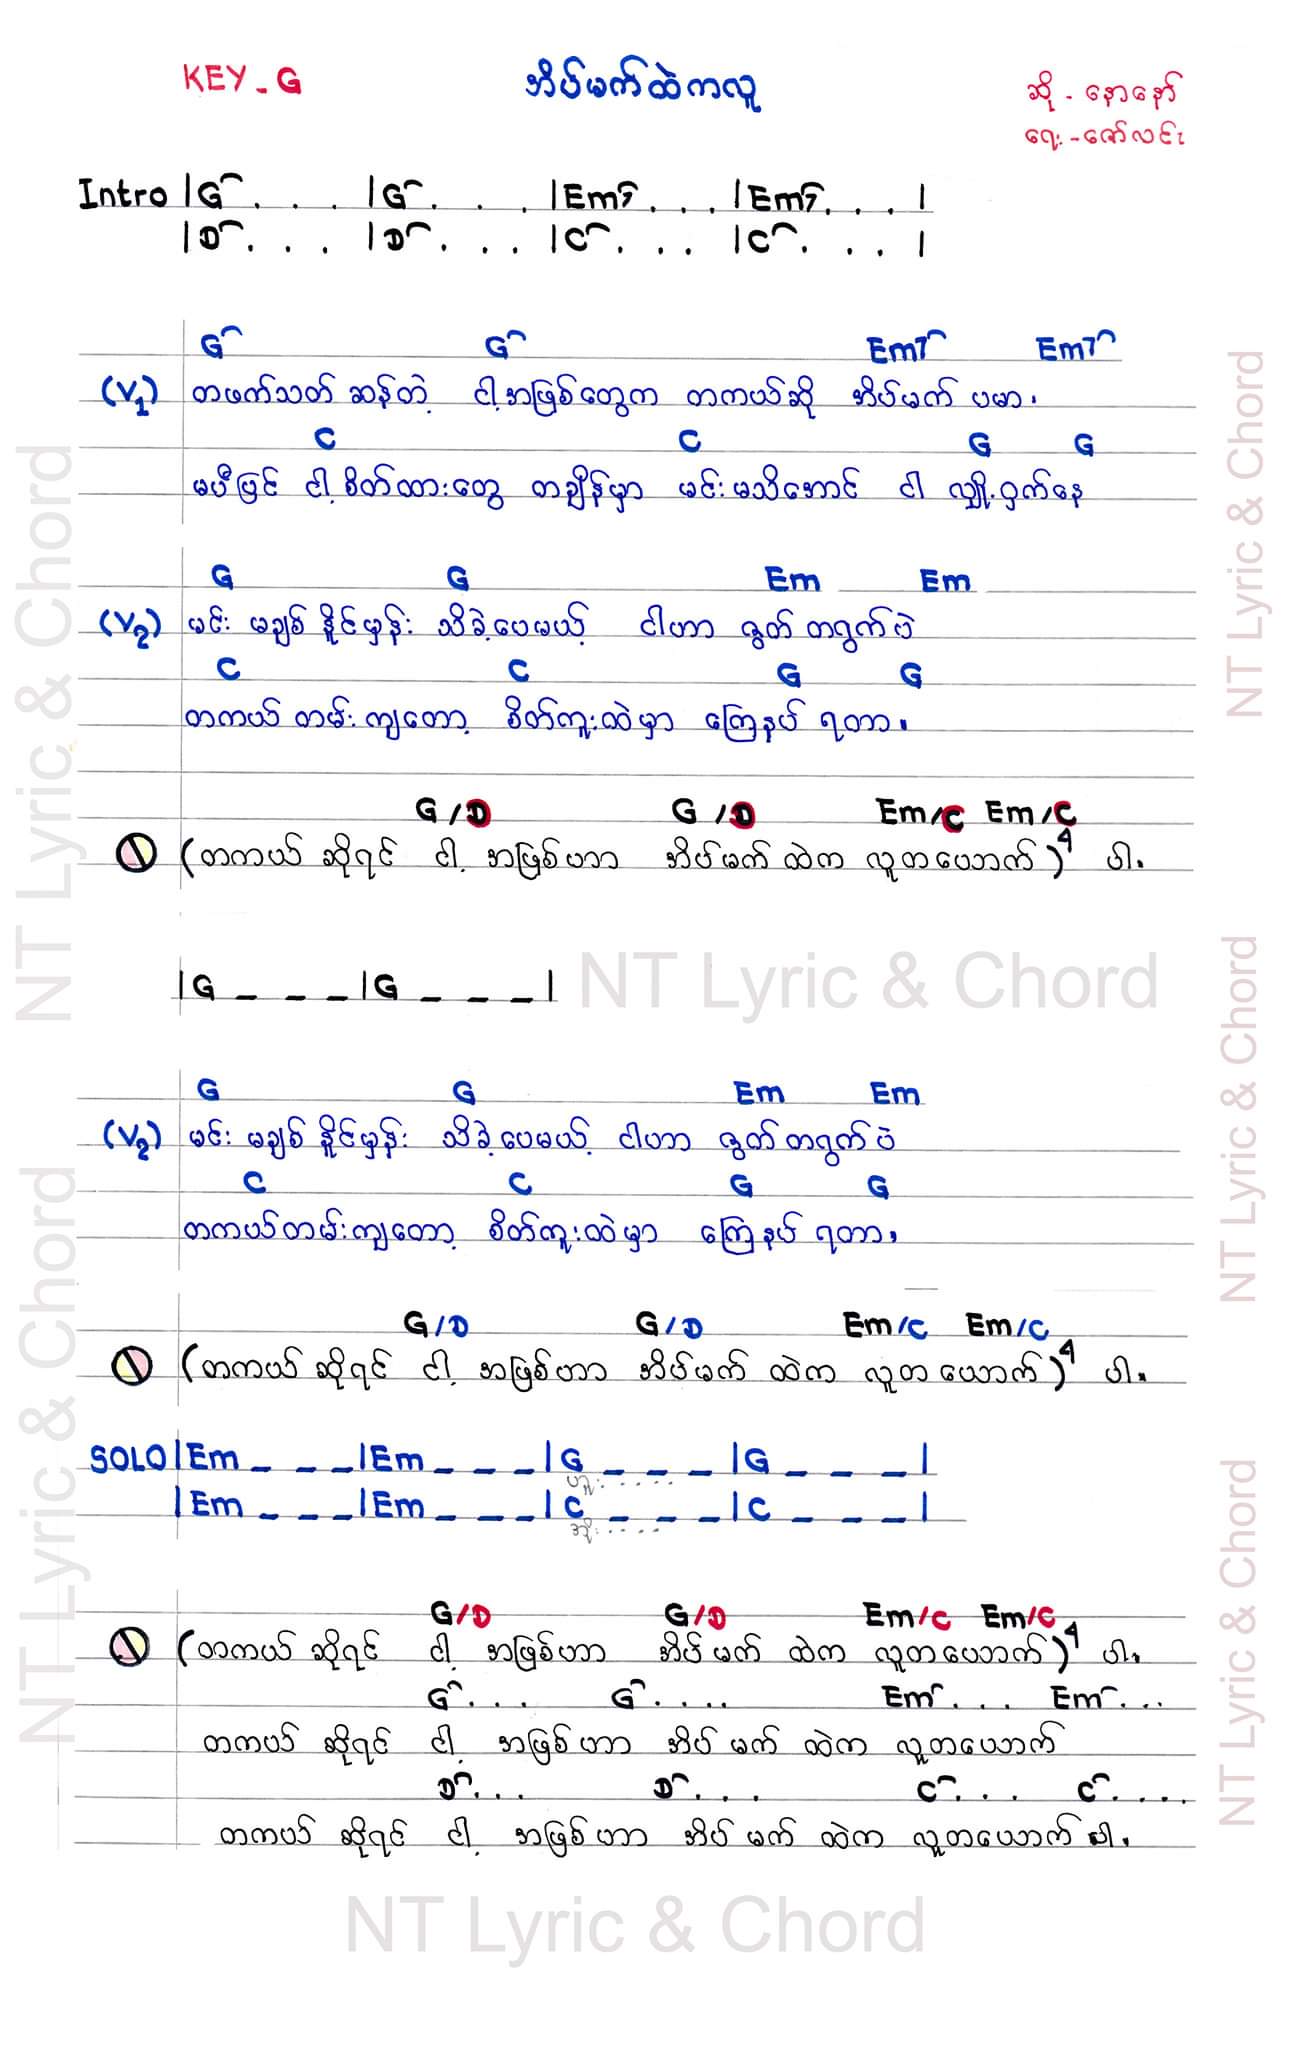 KEY - G
အိပ်မက်ထဲကလူ
ဆို - နောနော်
ရေး - ဇော်လင်း
Intro |G . . . |G . . . |Em7 . . . |Em7 . . . |
|D . . . |D . . . |C . . . |C . . . |
G G Em7 Em7
(V1) တဖက်သတ် ဆန်တဲ့ ငါ့အဖြစ်တွေက တကယ်ဆို အိပ်မက် ပမာ.
C C G G
မပီပြင် ငါ့စိတ်ထားတွေ တချိန်မှာ မင်းမသိအောင် ငါ လျှို့ဝှက်နေ
G G Em Em
(V2) မင်း မချစ် နိူင်မှန်း သိခဲ့ပေမယ့် ငါဟာ ဇွတ် တရွက်ပဲ
C C G G
တကယ် တမ်းကျတော့ စိတ်ကူးထဲမှာ ကြေနပ် ရတာ.
G/D G/D Em/C Em/C
(တကယ် ဆိုရင် ငါ့ အဖြစ်ဟာ အိပ်မက် ထဲက လူတယောက်)4 ပါ.
|G _ _ _ |G _ _ _ |
NT Lyric & Chord
G G Em Em
(V2) မင်း မချစ် နိူင်မှန်း သိခဲ့ပေမယ့် ငါဟာ ဇွတ် တရွက်ပဲ
C C G G
တကယ်တမ်းကျတော့ စိတ်ကူးထဲမှာ ကြေနပ် ရတာ.
G/D G/D Em/C Em/C
(တကယ် ဆိုရင် ငါ့ အဖြစ်ဟာ အိပ်မက် ထဲက လူတယောက်)4 ပါ.
SOLO |Em _ _ _ |Em _ _ _ |G _ _ _ |G _ _ _ |
|Em _ _ _ |Em _ _ _ |C _ _ _ |C _ _ _ |
G/D G/D Em/C Em/C
(တကယ် ဆိုရင် ငါ့ အဖြစ်ဟာ အိပ်မက် ထဲက လူတယောက်)4 ပါ.
G . . . G . . . . Em . . . Em . . .
တကယ် ဆိုရင် ငါ့ အဖြစ်ဟာ အိပ်မက် ထဲက လူတယောက်
D . . . D . . . C . . . C . . . .
တကယ် ဆိုရင် ငါ့ အဖြစ်ဟာ အိပ်မက် ထဲက လူတယောက် ပါ.
NT Lyric & Chord
NT Lyric & Chord
NT Lyric & Chord
NT Lyric & Chord
NT Lyric & Chord
NT Lyric & Chord